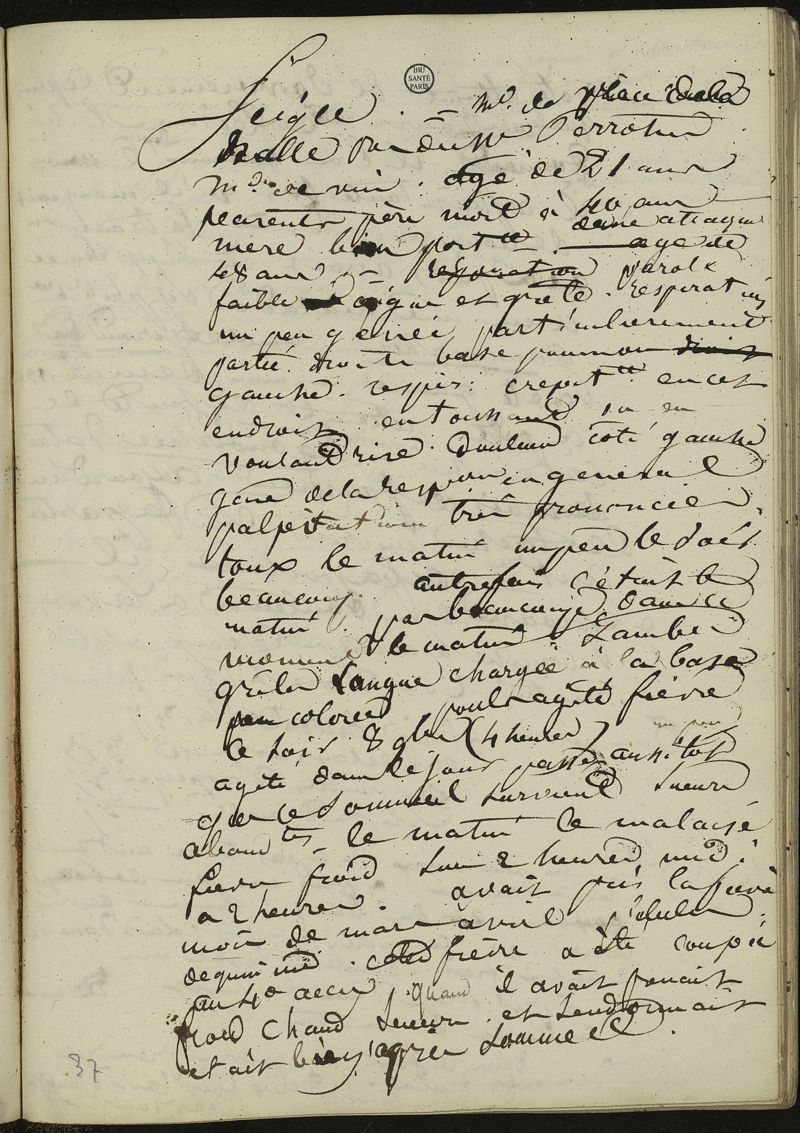 DU
SANTÉ
PARIS
Md. de
halle Perrotin
md. de vin. agé de 21 ans
parents père mort à 40 ans
d'une attaque
mere bien portte. agé de
48 ans - respiration parole
faible aigue et grele. respiration
un peu genée particulierement
partie droite base poumon droit
gauche. respir: crepitte en cet
endroit en toussant ou en
voulant rire. Douleur coté gauche
gene de la respiron en general
palpitation très prononcée,
toux le matin un peu le soir
beaucoup. autrefois c'était le
matin. pas beaucoup dans ce
moment le matin. Jambes
grêles Langue chargée à la base
peu colorée pouls agité fièvre
le soir 8 (4 heures) un peu
agité dans le jour passé aussitot
que le Sommeil survient Sueurs
abondtes - le matin le malaise
fievre froid sur 2 heures midi
a 2 heures. avait pris la fievre
mois de mars avril pilules
de quinine. cette fièvre a été coupée
au 4e accès quand il avait
froid chaud Sueurs et sendormait
etait bien après Sommeil.
37